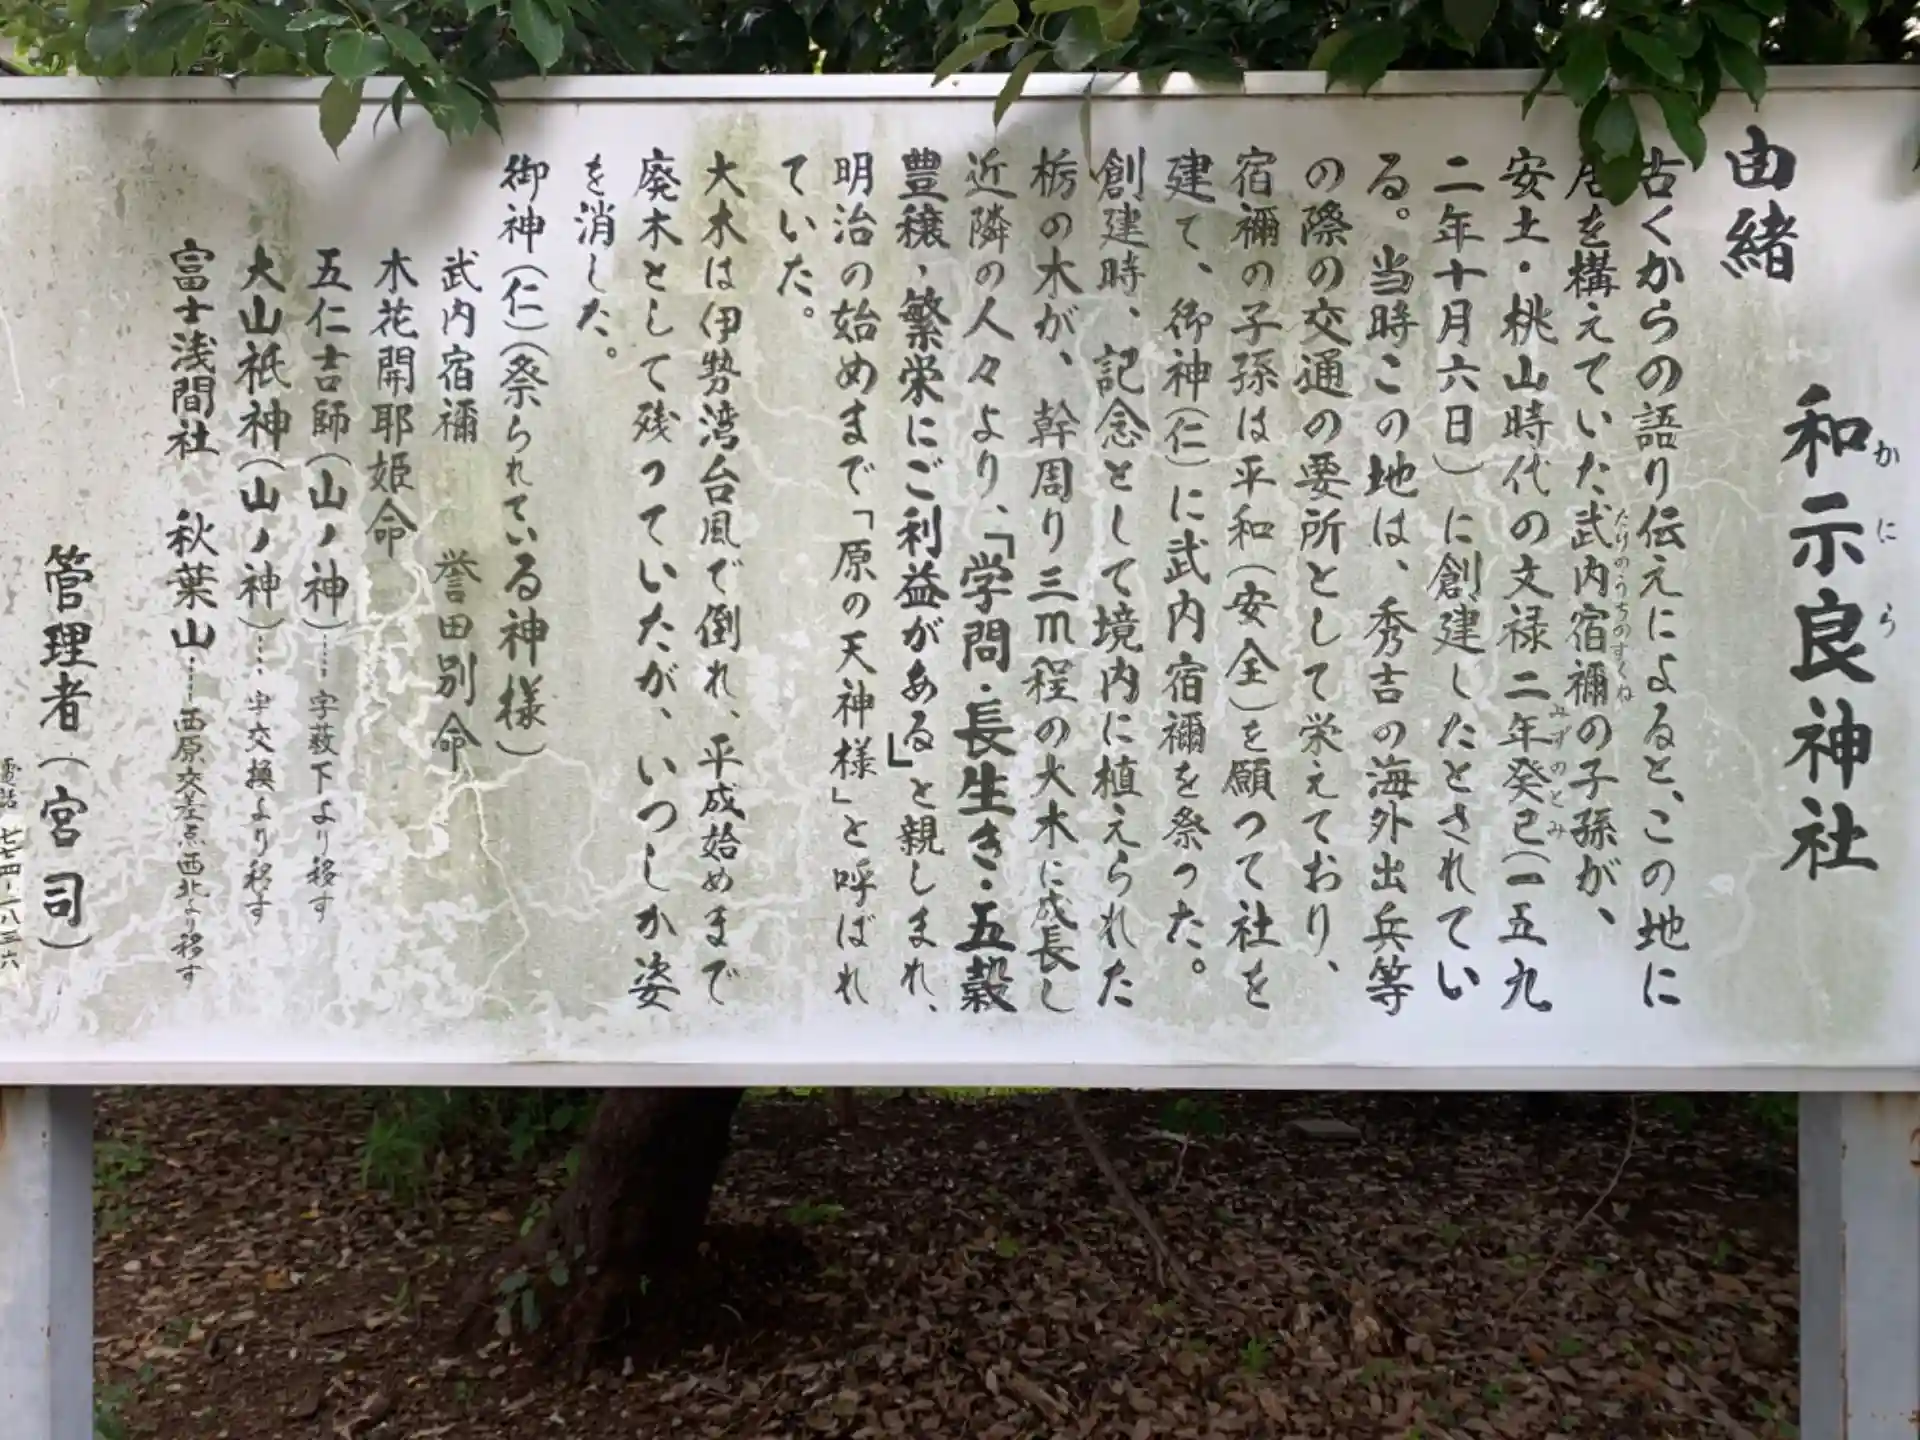 和示良神社
かにら
由緒
古くからの語り伝えによると、この地に
居を構えていた武内宿禰の子孫が、
たけのうちのすくね
安土・桃山時代の文禄二年癸巳(一五九
みずのとみ
二年十月六日)に創建したとされてい
る。当時この地は、秀吉の海外出兵等
の際の交通の要所として栄えており、
宿禰の子孫は平和(安全)を願って社を
建て、御神(仁)に武内宿禰を祭った。
創建時、記念として境内に植えられた
栃の木が、幹周り三m程の大木に成長し
近隣の人々より、「学問・長生き・五穀
豊穣・繁栄にご利益がある」と親しまれ、
明治の始めまで「原の天神様」と呼ばれ
ていた。
大木は伊勢湾台風で倒れ、平成始めまで
廃木として残っていたが、いつしか姿
を消した。
御神(仁)(祭られている神様)
武内宿禰 誉田別命
木花開耶姫命
五仁吉師(山ノ神)……字薮下より移す
大山祇神(山ノ神)……字交換より移す
富士浅間社 秋葉山……西原交差点西北より移す
管理者(宮司)
電話 七七四-一八三六